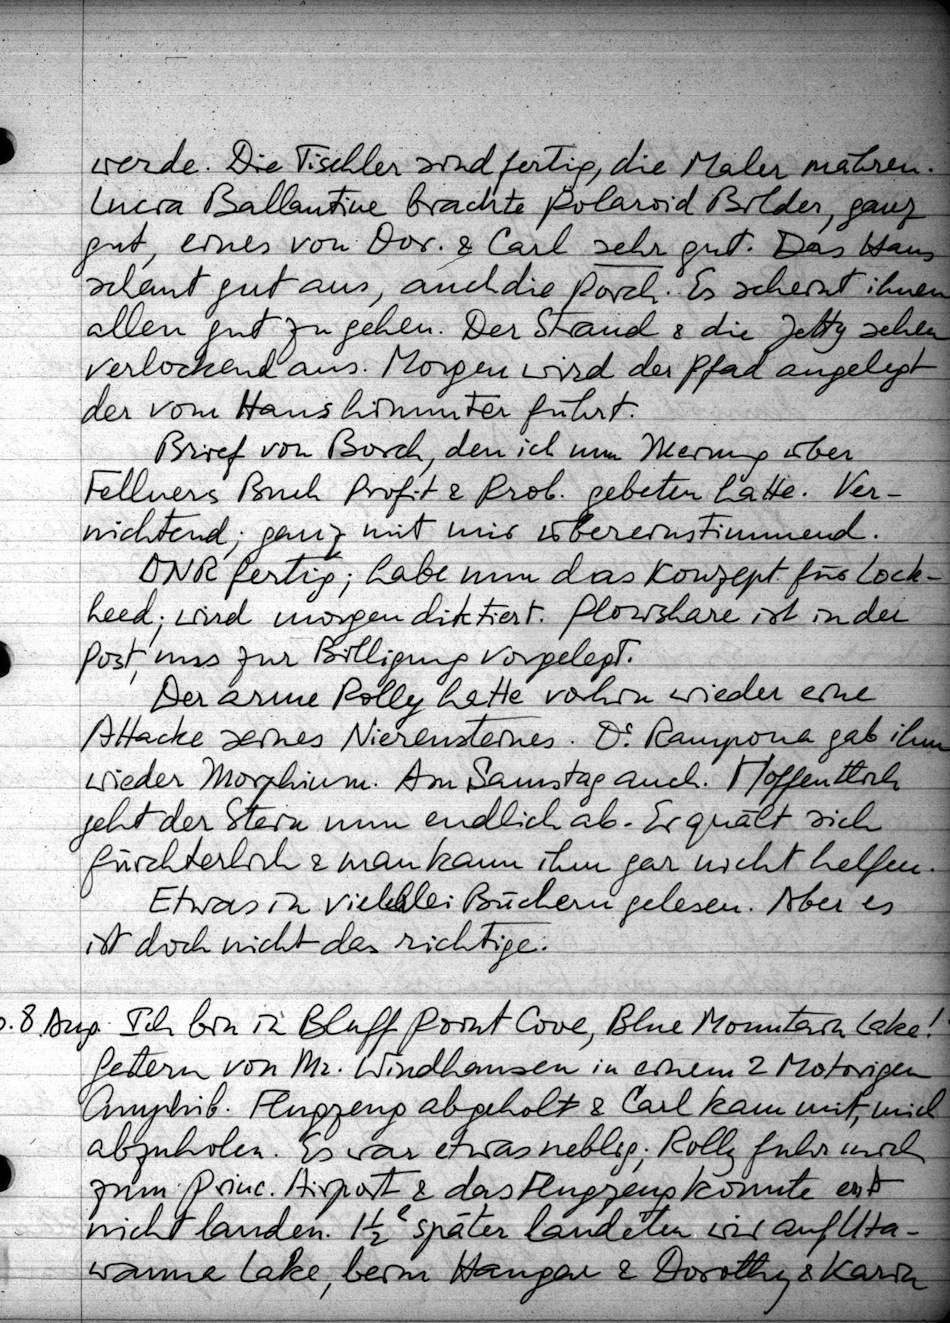 werde. Die Tischler sind fertig, die Maler mähren.
Lucia Ballantine brachte Polaroid Bilder, ganz
gut, eines von Dor. & Carl sehr gut. Das Haus
schaut gut aus, auch die Porch. Es scheint ihnen
allen gut zu gehen. Der Strand & die Jetty sehen
verlockend aus. Morgen wird der Pfad angelegt
der vom Haus hinunter führt.
Brief von Borch, den ich um Meinung über
Fellners Buch Profit & Prob. gebeten hatte. Ver-
nichtend; ganz mit mir übereinstimmend.
DNR fertig; habe nun das Konzept für Lock-
heed; wird morgen diktiert. Plowshare ist in der
Post, uns zur Billigung vorgelegt.
Der arme Rolly hatte vorhin wieder eine
Attacke seines Nierensteines. Dr. Rampona gab ihm
wieder Morphium. Am Samstag auch. Hoffentlich
geht der Stein nun endlich ab. Er quält sich
fürchterlich & man kann ihm gar nicht helfen.
Etwas in vielerlei Büchern gelesen. Aber es
ist doch nicht das richtige.
8. Aug. Ich bin in Bluff Point Cove, Blue Mountain Lake!
Gestern von Mr. Windhausen in einem 2 Motorigen
Amphib. Flugzeug abgeholt & Carl kam mit, mich
abzuholen. Es war etwas neblig; Rolly fuhr mich
zum Princ. Airport & das Flugzeug konnte erst
nicht landen. 1½ später landeten wir auf Uta-
wanna Lake, beim Hangar & Dorothy & Karin